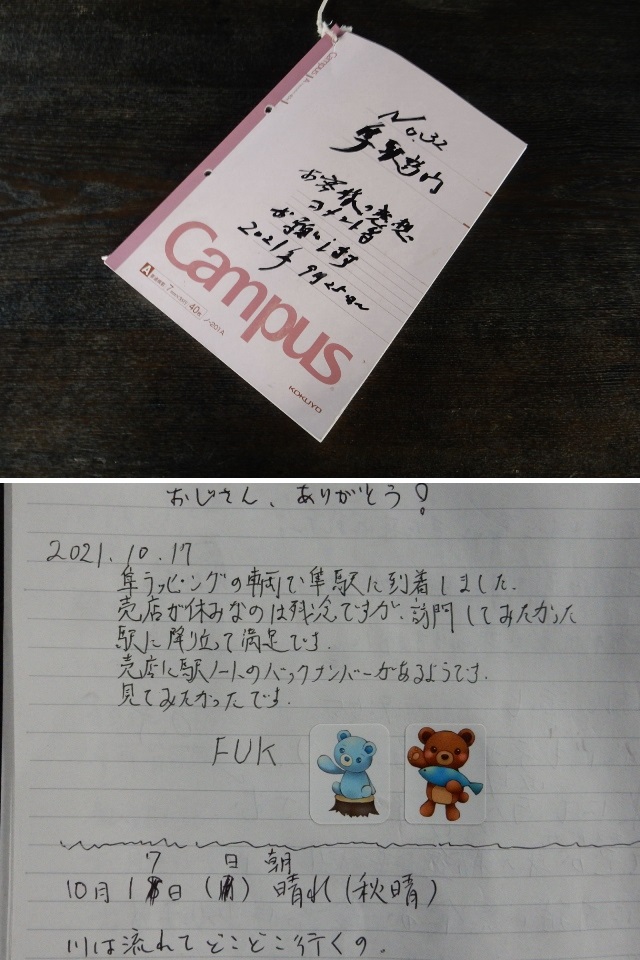 No.32
隼駅舎内
お客様の感想
コメント書
お願いします
2021年 9月25日〜
Campus
A 7mm 40
ノ-201A
KOKUYO
おじさん、ありがとう!
2021.10.17
隼ラッピングの車両で隼駅に到着しました.
売店が休みなのは残念ですが、訪問してみたかった
駅に降り立って満足です.
売店に駅ノートのバックナンバーがあるようです.
見てみたかったです.
FUK
7 日 朝
10月1日() 晴れ(秋晴)
川は流れてどこどこ行くの.